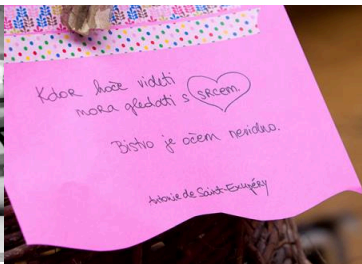 Kdor hoče videti
mora gledati s srcem.
Bistvo je očem nevidno.
Antoine de Saint-Exupéry